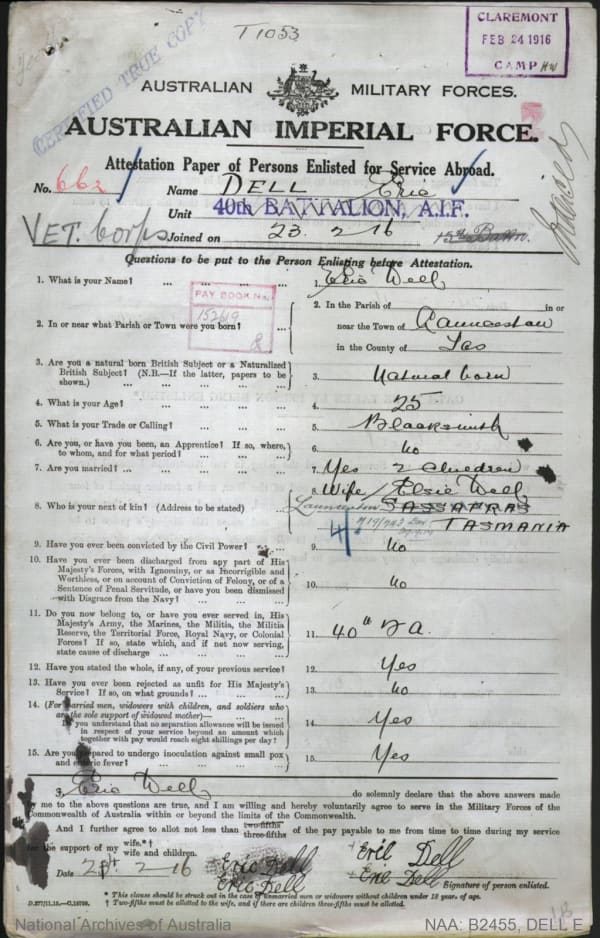 T1053
CLAREMONT
FEB 24 1916
CAMP
CERTIFIED TRUE COPY
AUSTRALIAN MILITARY FORCES.
AUSTRALIAN IMPERIAL FORCE.
Attestation Paper of Persons Enlisted for Service Abroad.
No. 662 Name DELL Eric
Unit 40th BATTALION, A.I.F.
VET. Corps Joined on 23. 2 16
Questions to be put to the Person Enlisting before Attestation.
1. What is your Name? ... 1. Eric Dell
PAY BOOK No.
15249
2. In or near what Parish or Town were you born? ... 2. In the Parish of in or
near the Town of Launceston
in the County of Tas
3. Are you a natural born British Subject or a Naturalized
British Subject? (N.B.—If the latter, papers to be
shown.) ... 3. Natural born
4. What is your Age? ... 4. 25
5. What is your Trade or Calling? ... 5. Blacksmith
6. Are you, or have you been, an Apprentice? If so, where,
to whom, and for what period? ... 6. No
7. Are you married? ... 7. Yes 2 Children
8. Who is your next of kin? (Address to be stated) ... 8. Wife Elsie Dell
Launceston SASSAFRAS
TASMANIA
9. Have you ever been convicted by the Civil Power? ... 9. No
10. Have you ever been discharged from any part of His
Majesty's Forces, with Ignominy, or as Incorrigible and
Worthless, or on account of Conviction of Felony, or of a
Sentence of Penal Servitude, or have you been dismissed
with Disgrace from the Navy? ... 10. No
11. Do you now belong to, or have you ever served in, His
Majesty's Army, the Marines, the Militia, the Militia
Reserve, the Territorial Force, Royal Navy, or Colonial
Forces? If so, state which, and if not now serving,
state cause of discharge ... 11. 40th
12. Have you stated the whole, if any, of your previous service? 12. Yes
13. Have you ever been rejected as unfit for His Majesty's
Service? If so, on what grounds? ... 13. No
14. (For married men, widowers with children, and soldiers who
are the sole support of widowed mother)—
Do you understand that no separation allowance will be issued
in respect of your service beyond an amount which
together with pay would reach eight shillings per day? ... 14. Yes
15. Are you prepared to undergo inoculation against small pox
and enteric fever? ... 15. Yes
I, Eric Dell do solemnly declare that the above answers made
by me to the above questions are true, and I am willing and hereby voluntarily agree to serve in the Military Forces of the
Commonwealth of Australia within or beyond the limits of the Commonwealth.
And I further agree to allot not less than two-fifths three-fifths of the pay payable to me from time to time during my service
for the support of my wife.*†
wife and children.
Date 2 16 Eric Dell + Eric Dell
Eric Dell + Eric Dell Signature of person enlisted.
* This clause should be struck out in the case of unmarried men or widowers without children under 18 years of age.
† Two-fifths must be allotted to the wife, and if there are children three-fifths must be allotted.
D.277/11.15.—C.15799.
National Archives of Australia NAA: B2455, DELL E